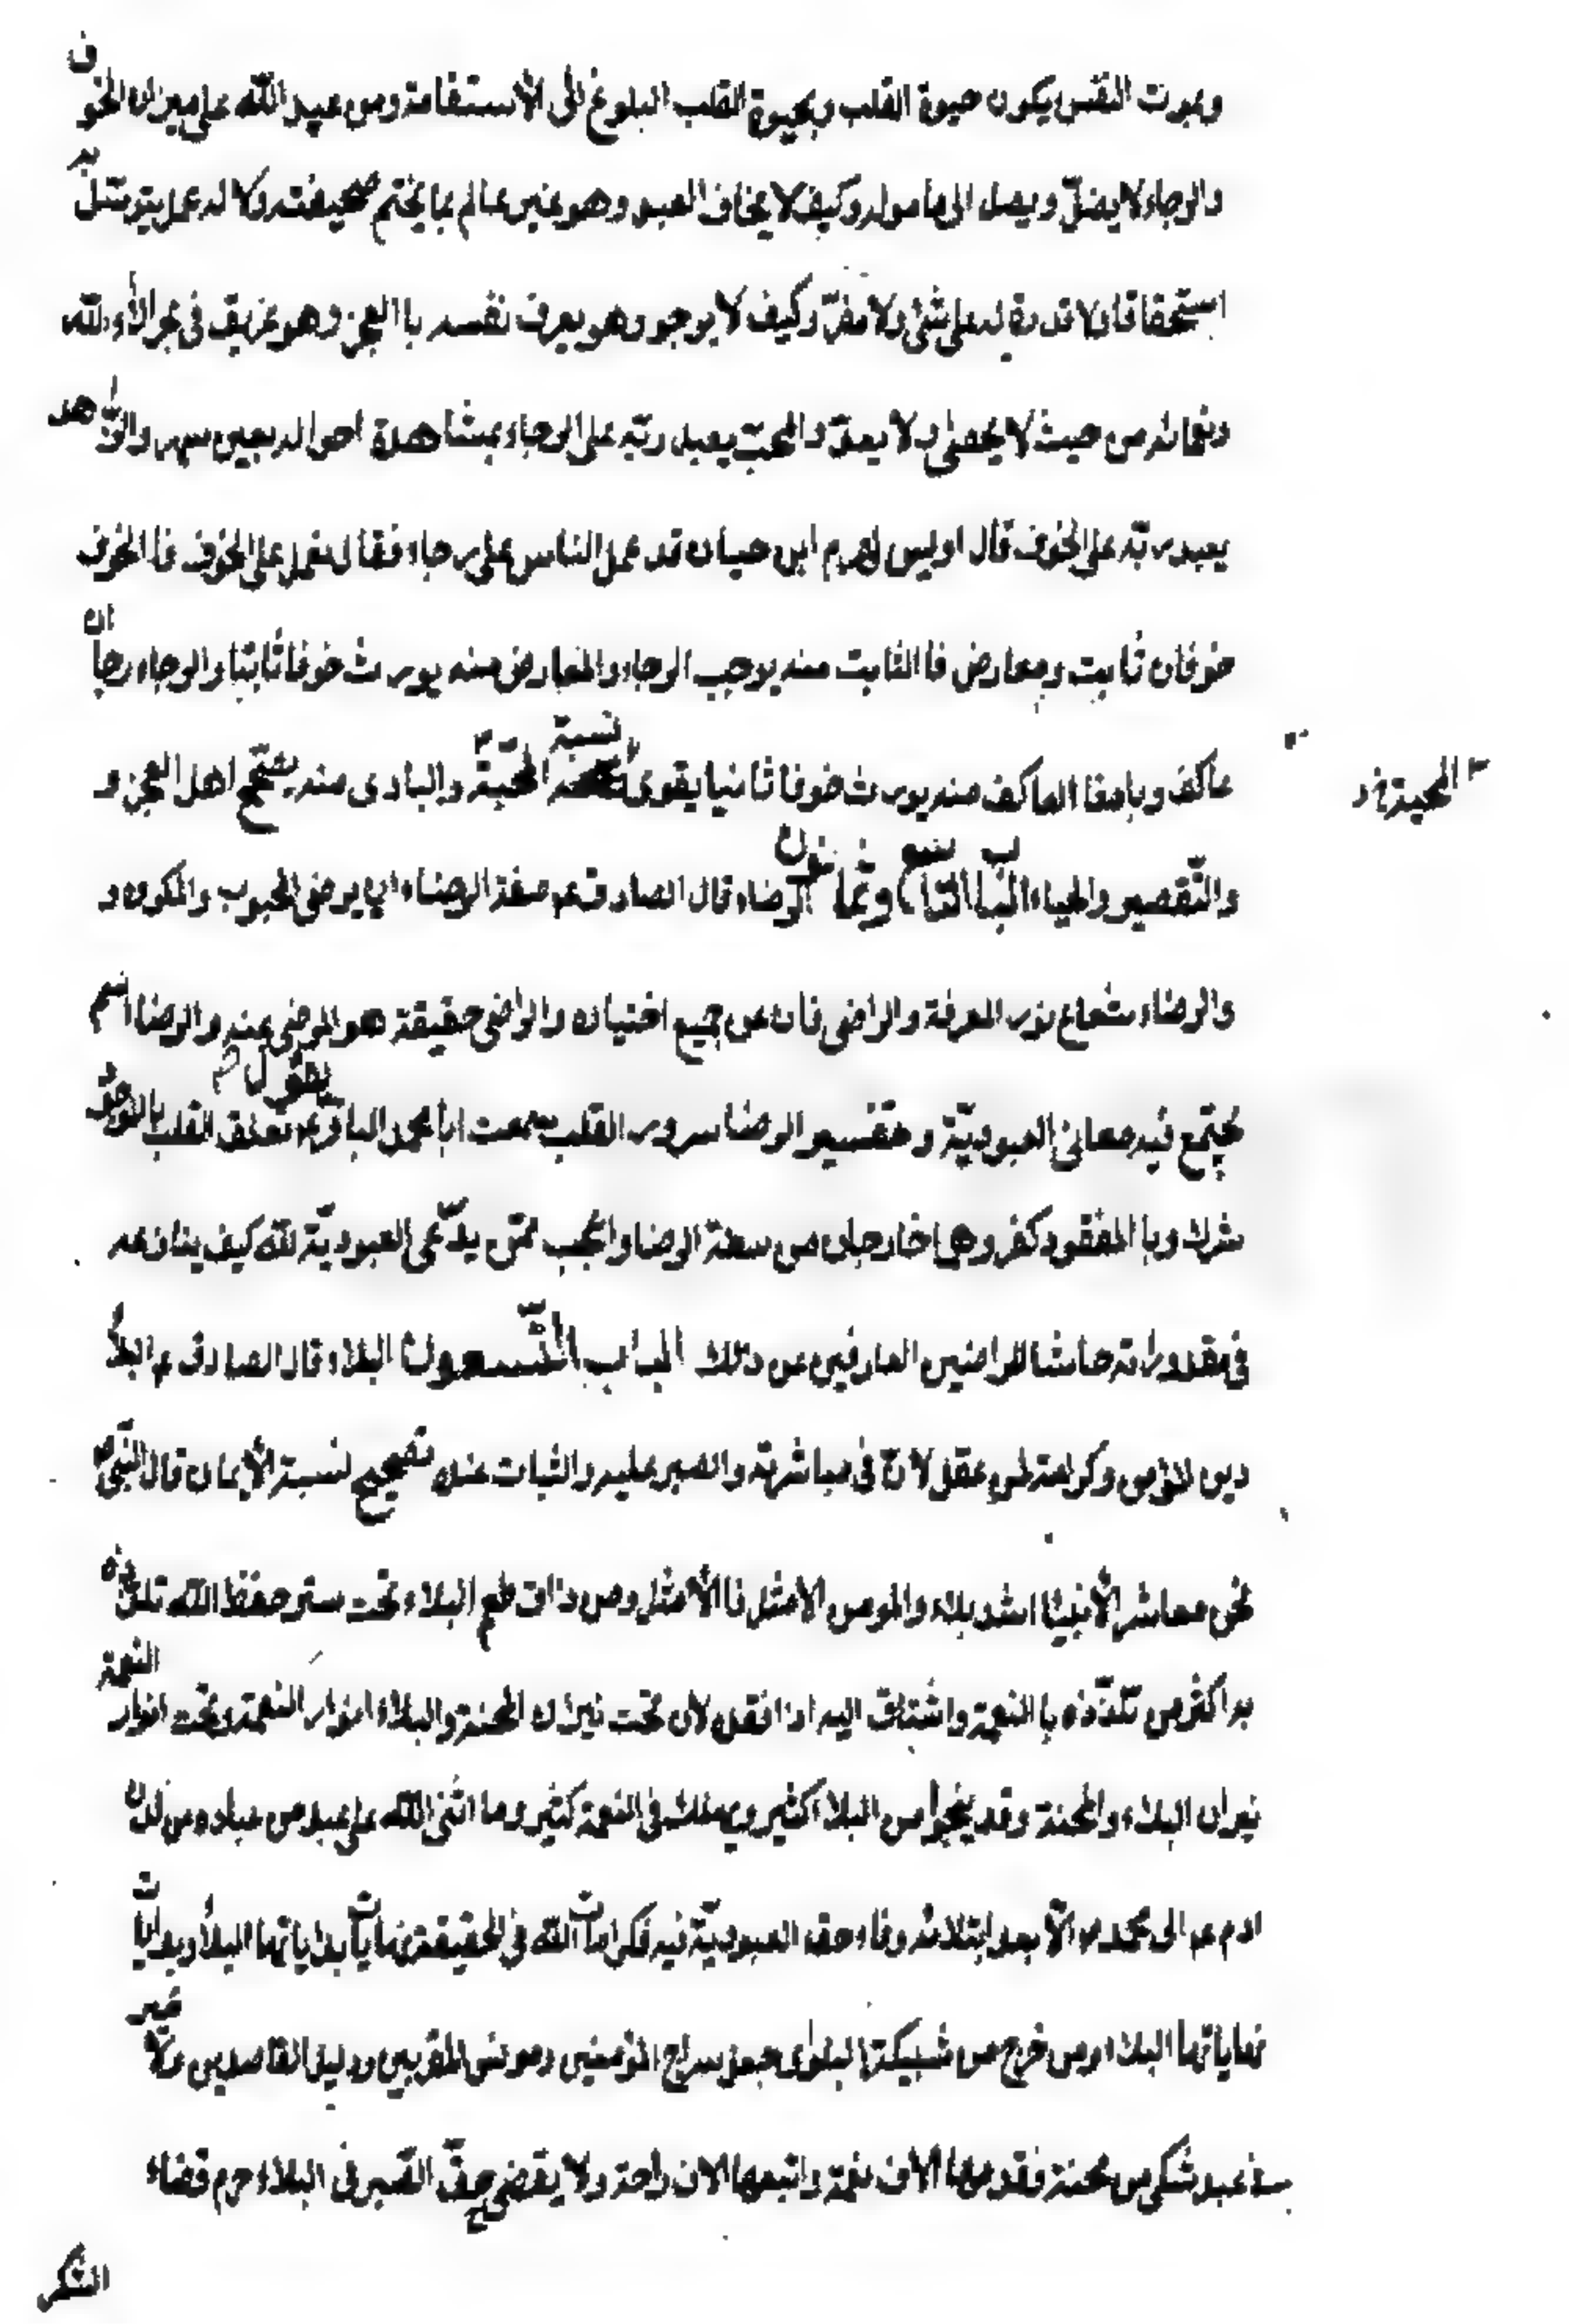 وبموت النفس يكون حيوة القلب وبحيوة القلب البلوغ الى الاستقامة ومن عبد الله على ميزان الخوف
والرجاء لا يضلّ ويصل الى مأموله وكيف لا يخاف العبد وهو غير عالم بما يختم صحيفته ولا له عمل يتوسّل به
استحقاقا ولا قدرة له على شئ ولا مفرّ وكيف لا يرجو وهو يعرف نفسه باالعجز وهو غريق في بحر الاء لله
ونعمائه من حيث لا يحصى ولا يعدّ والمحبّ يعبد ربّه على الرجاء بمشاهدة احواله بعين سهر والزّاهد
يعبد ربّه على الخوف قال اويس لهرم ابن حيان قد عمل الناس على رجاء فقال نعمل على الخوف فاالخوف
خوفان ثابت ومعارض فاالثابت منه يوجب الرجاء والمعارض منه يورث خوفا ثابتا والرجاء رجاأن
عاكف وباد فا العاكف منه يورث خوفا ثانيا يقوى نسبة المحبّة والبادى منه يفتح اهل العجز و
المحبة ن
والتّقصير والحياء الباب التاسع وثمانون الرضاء قال الصادق عم صفة الرضاء ان يرضى المحبوب والمكروه و
والرضاء شعاع نور المعرفة والراضى فان عن جميع اختياره والراضى حقيقة هو المرضى عنه والرضا اسم
يجتمع فيه معانى العبوديّة وتفسير الرضا سرور القلب سمعت ابا محمد الباقر عم يقول تعلق القلب بالموجود
شرك وباالمفقود كفر وهما خارجان من سنة الرضا واعجب ممّن يدّعى العبوديّة لله كيف ينازعه
في مقدوراته حاشا الراضين العارفين عن ذلك الباب التّسعون البلاء قال الصادق عم البلاء
دين المؤمن وكرامة لمن عقل لانّ في مباشرته والصبر عليه والثبات عنده تصحيح لنسبة الأيمان قال النّبى ص
نحن معاشر الأنبيا اشد بلاء والمومن الامثل فاالأمثل ومن ذاق طعم البلاء تحت ستر حفظ الله تلذّذ
به اكثر من تلذّذه باالنعمة واشتاق اليه اذا فقده لان تحت نيران المحنة والبلاء انوار النعمة وتحت انوار النعمة
نيران البلاء والمحنة وقد ينجوا من البلاء كثير ويهلك في النعمة كثير وما اثنى الله على عبد من عباده من لدن
ادم عم الى محمد ص الّا بعد ابتلائه وفاء حق العبوديّة فيه فكرامات الله في الحقيقة نهايات بداياتها البلاء وبدايات
نهاياتها البلاء ومن خرج من شبيكة البلوى جعل سراج المؤمنين ومونس المقرّبين ودليل القاصدين ولا خير
في عبد شكى من محنة تقدمها الاف نعمة واتبعها الاف راحة ولا يقضى حقّ الصّبر في البلاء حرم قضاء
الشكر